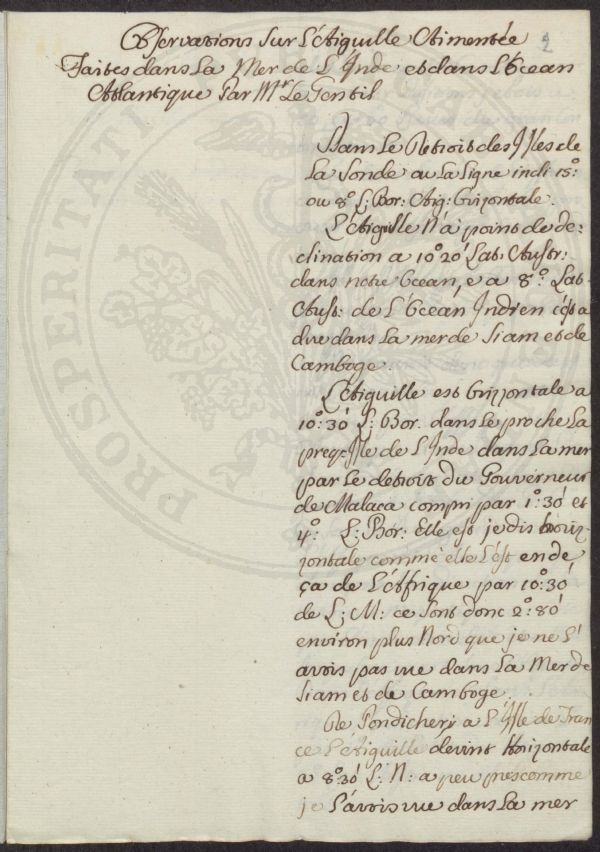 2
Observations sur L'Aiguille Aimentée
Faites dans La Mer de L'Inde et dans L'Ocean
Atlantique Par Mr. Le Gentil
Dans Le Detroit des Isles de
La Sonde au La Ligne incli 15°:
ou 8° L: Bor: Aig: Orizontale.
L'Aiguille N'a point de de:
clination a 10° 20' Lat. Austr:
dans notre Ocean, e a 8°: Lat.
Aust: de L'Ocean Indien c'est a
dire dans La mer de Siam et de
Camboge.
L'Aiguille est Orizontale a
10°: 30' L: Bor. dans le proche La
preqz Isle de L'Inde dans La mer
par Le detroit du Gouverneur
de Malaca compri par 1°: 30' et
4°: L: Bor: Elle est je dis horiz-
zontale comme elle L'est en de
ça de L'Afrique par 10°: 30'
de L: M: ce sont donc 2°: 80'
environ plus Nord que je ne L'
avois pas vue dans La Mer de
Siam et de Camboge.
De Pondichery a L'Isle de Fran
ce L'Aiguille devint Horizontale
a 8°: 30' L: N: a peu prescomme
je L'avois vue dans La mer
PROSPERITATI